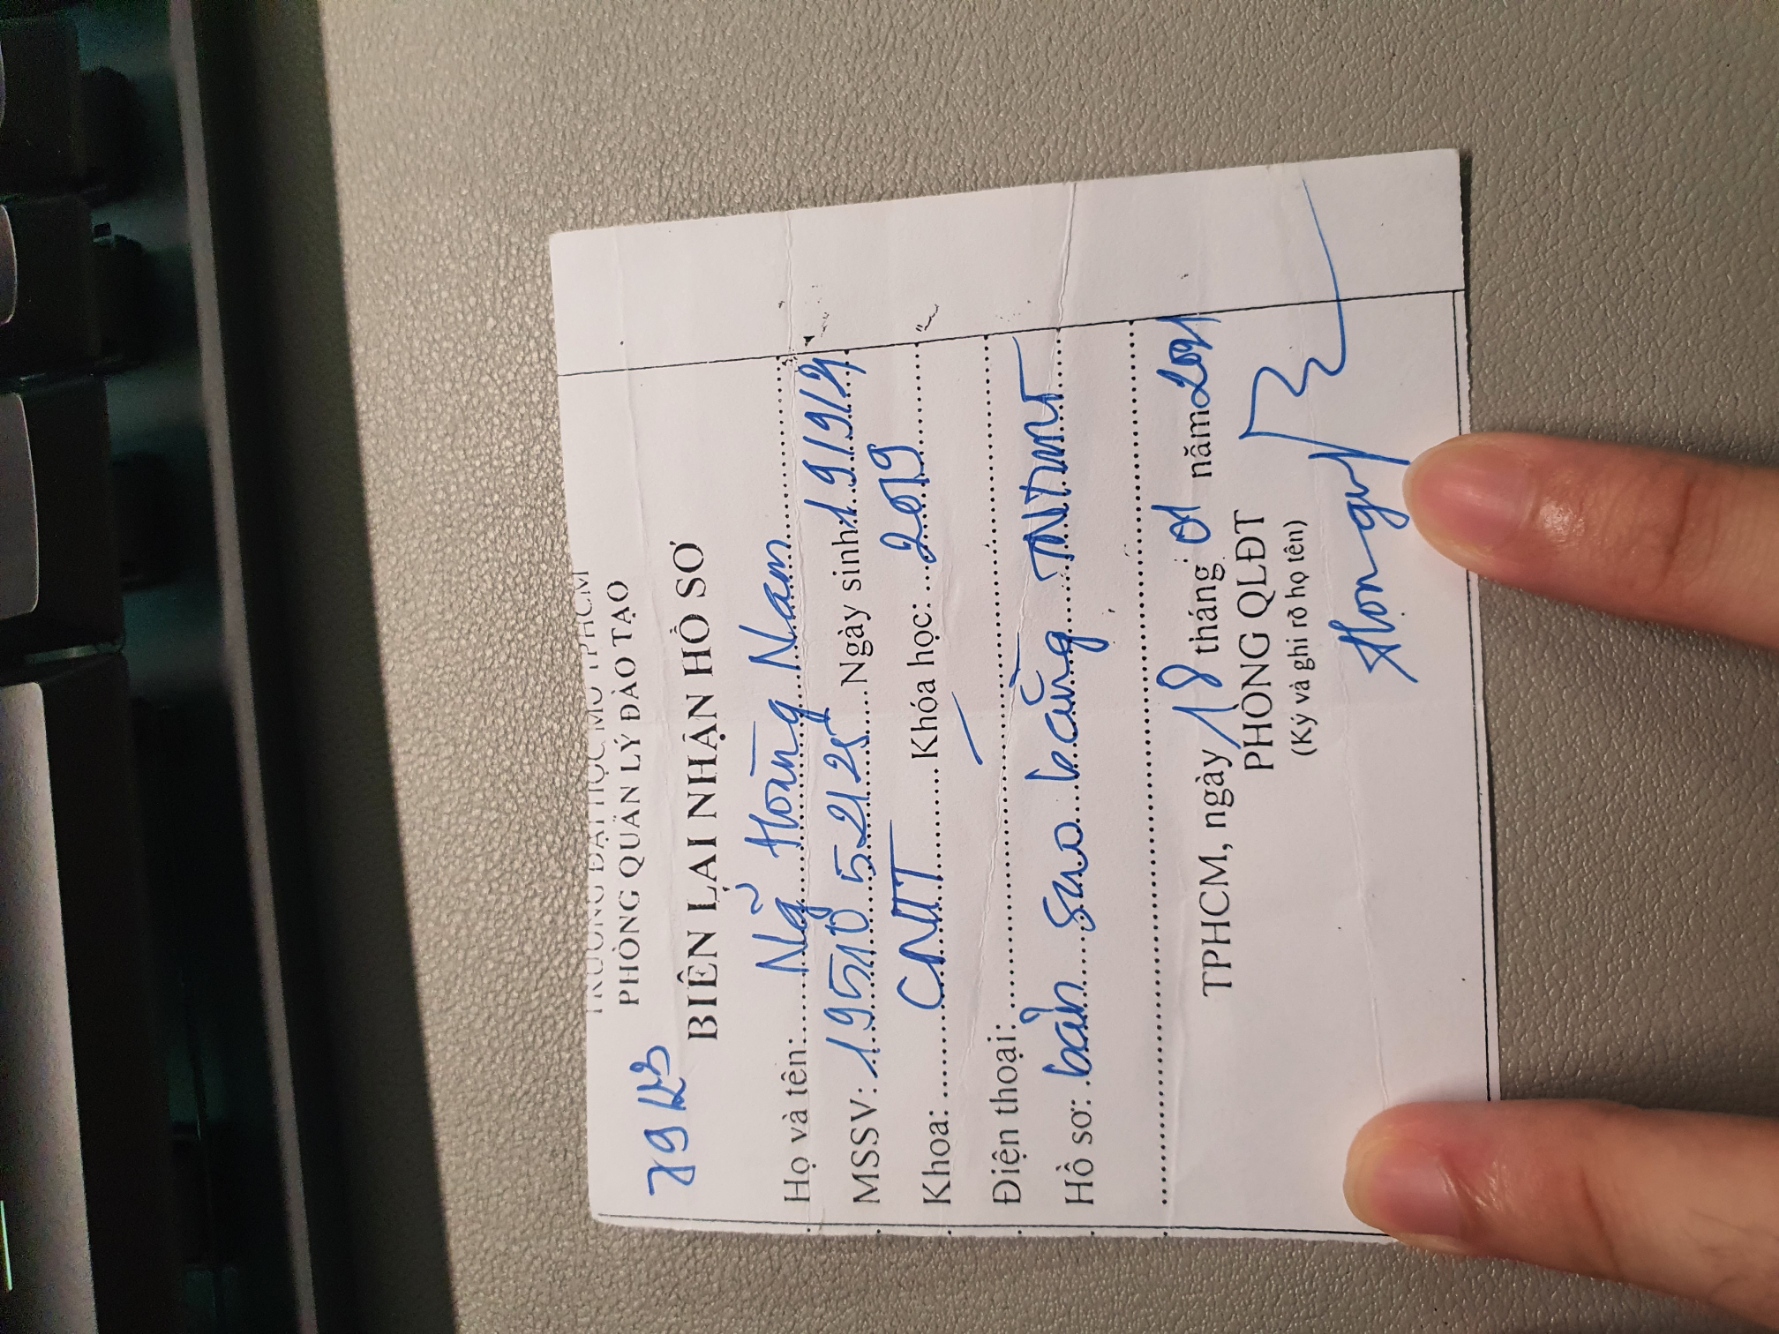 TRƯỜNG ĐẠI HỌC MỞ TPHCM
PHÒNG QUẢN LÝ ĐÀO TẠO
BIÊN LAI NHẬN HỒ SƠ
Họ và tên: Ng̃ Hoàng Nam
MSSV: 19510 52125 Ngày sinh: 19/9/
Khoa: CNTT Khóa học: 2019
Điện thoại: –
Hồ sơ: bản sao bằng TNTHPT
TPHCM, ngày 18 tháng 01 năm 2021
PHÒNG QLĐT
(Ký và ghi rõ họ tên)